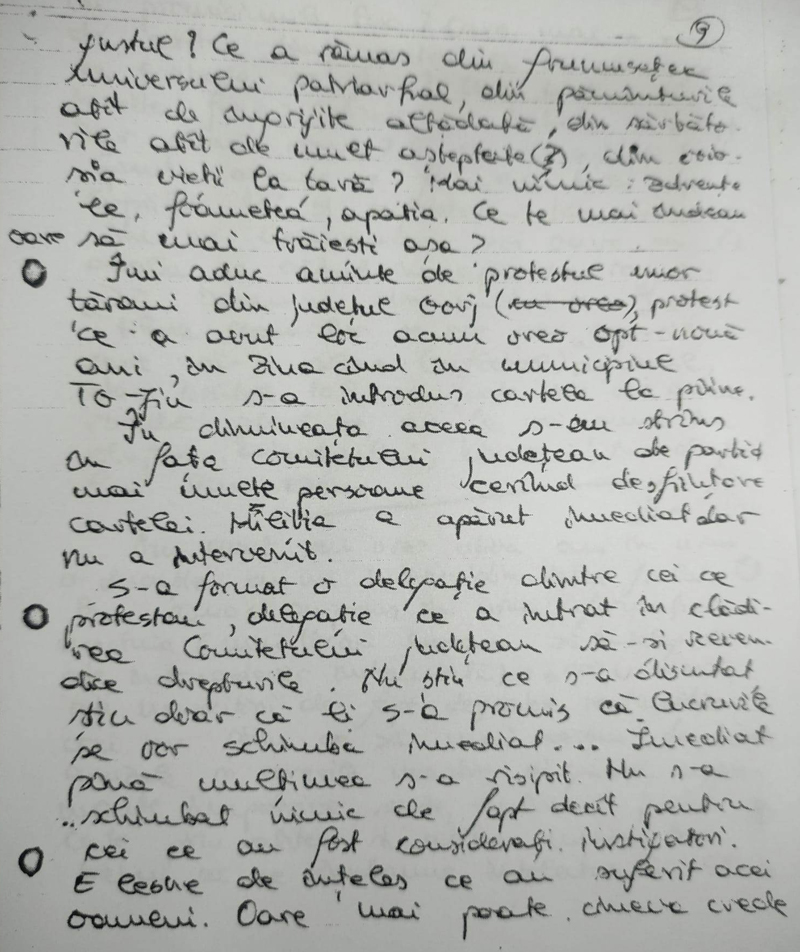 9
gustul? Ce a rămas din frumusețea
universului patriarhal, din pămînturile
atît de îngrijite altădată, din sărbăto-
rile atît de mult așteptate(?), din
vieții la țară? Mai nimic: zdrențe-
le, foametea, apatia. Ce te mai îndeamnă
oare să mai trăiești așa?
Îmi aduc aminte de protestul unor
țărani din județul Gorj (cu vreo), protest
ce a avut loc acum vreo opt-nouă
ani, în ziua cînd în municipiul
Tg-Jiu s-a introdus cartela la pîine.
În dimineața aceea s-au strîns
în fața Comitetului județean de partid
mai multe persoane cerînd desființarea
cartelei. Miliția a apărut imediat dar
nu a intervenit.
S-a format o delegație dintre cei ce
protestau, delegație ce a intrat în clădi-
rea Comitetului județean să-și reven-
dice drepturile. Nu știu ce s-a discutat
știu doar că li s-a promis că lucrurile
se vor schimba imediat.... Imediat
pînă mulțimea s-a risipit. Nu s-a
schimbat nimic de fapt decît pentru
cei ce au fost considerați instigatori.
E lesne de înțeles ce au suferit acei
oameni. Oare mai poate cineva crede